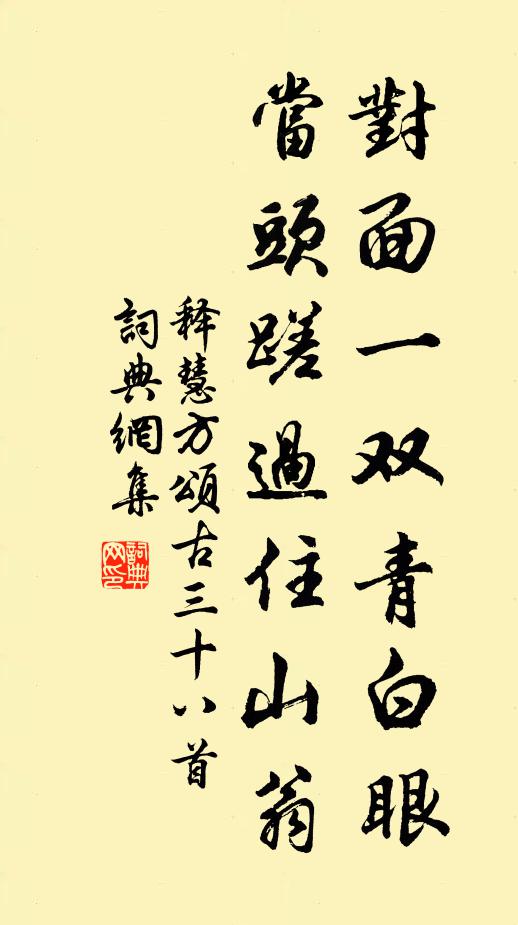 對面一双青白眼
當頭蹉過住山翁
释慧方頌古三十八首
詞典網集
詞典网印